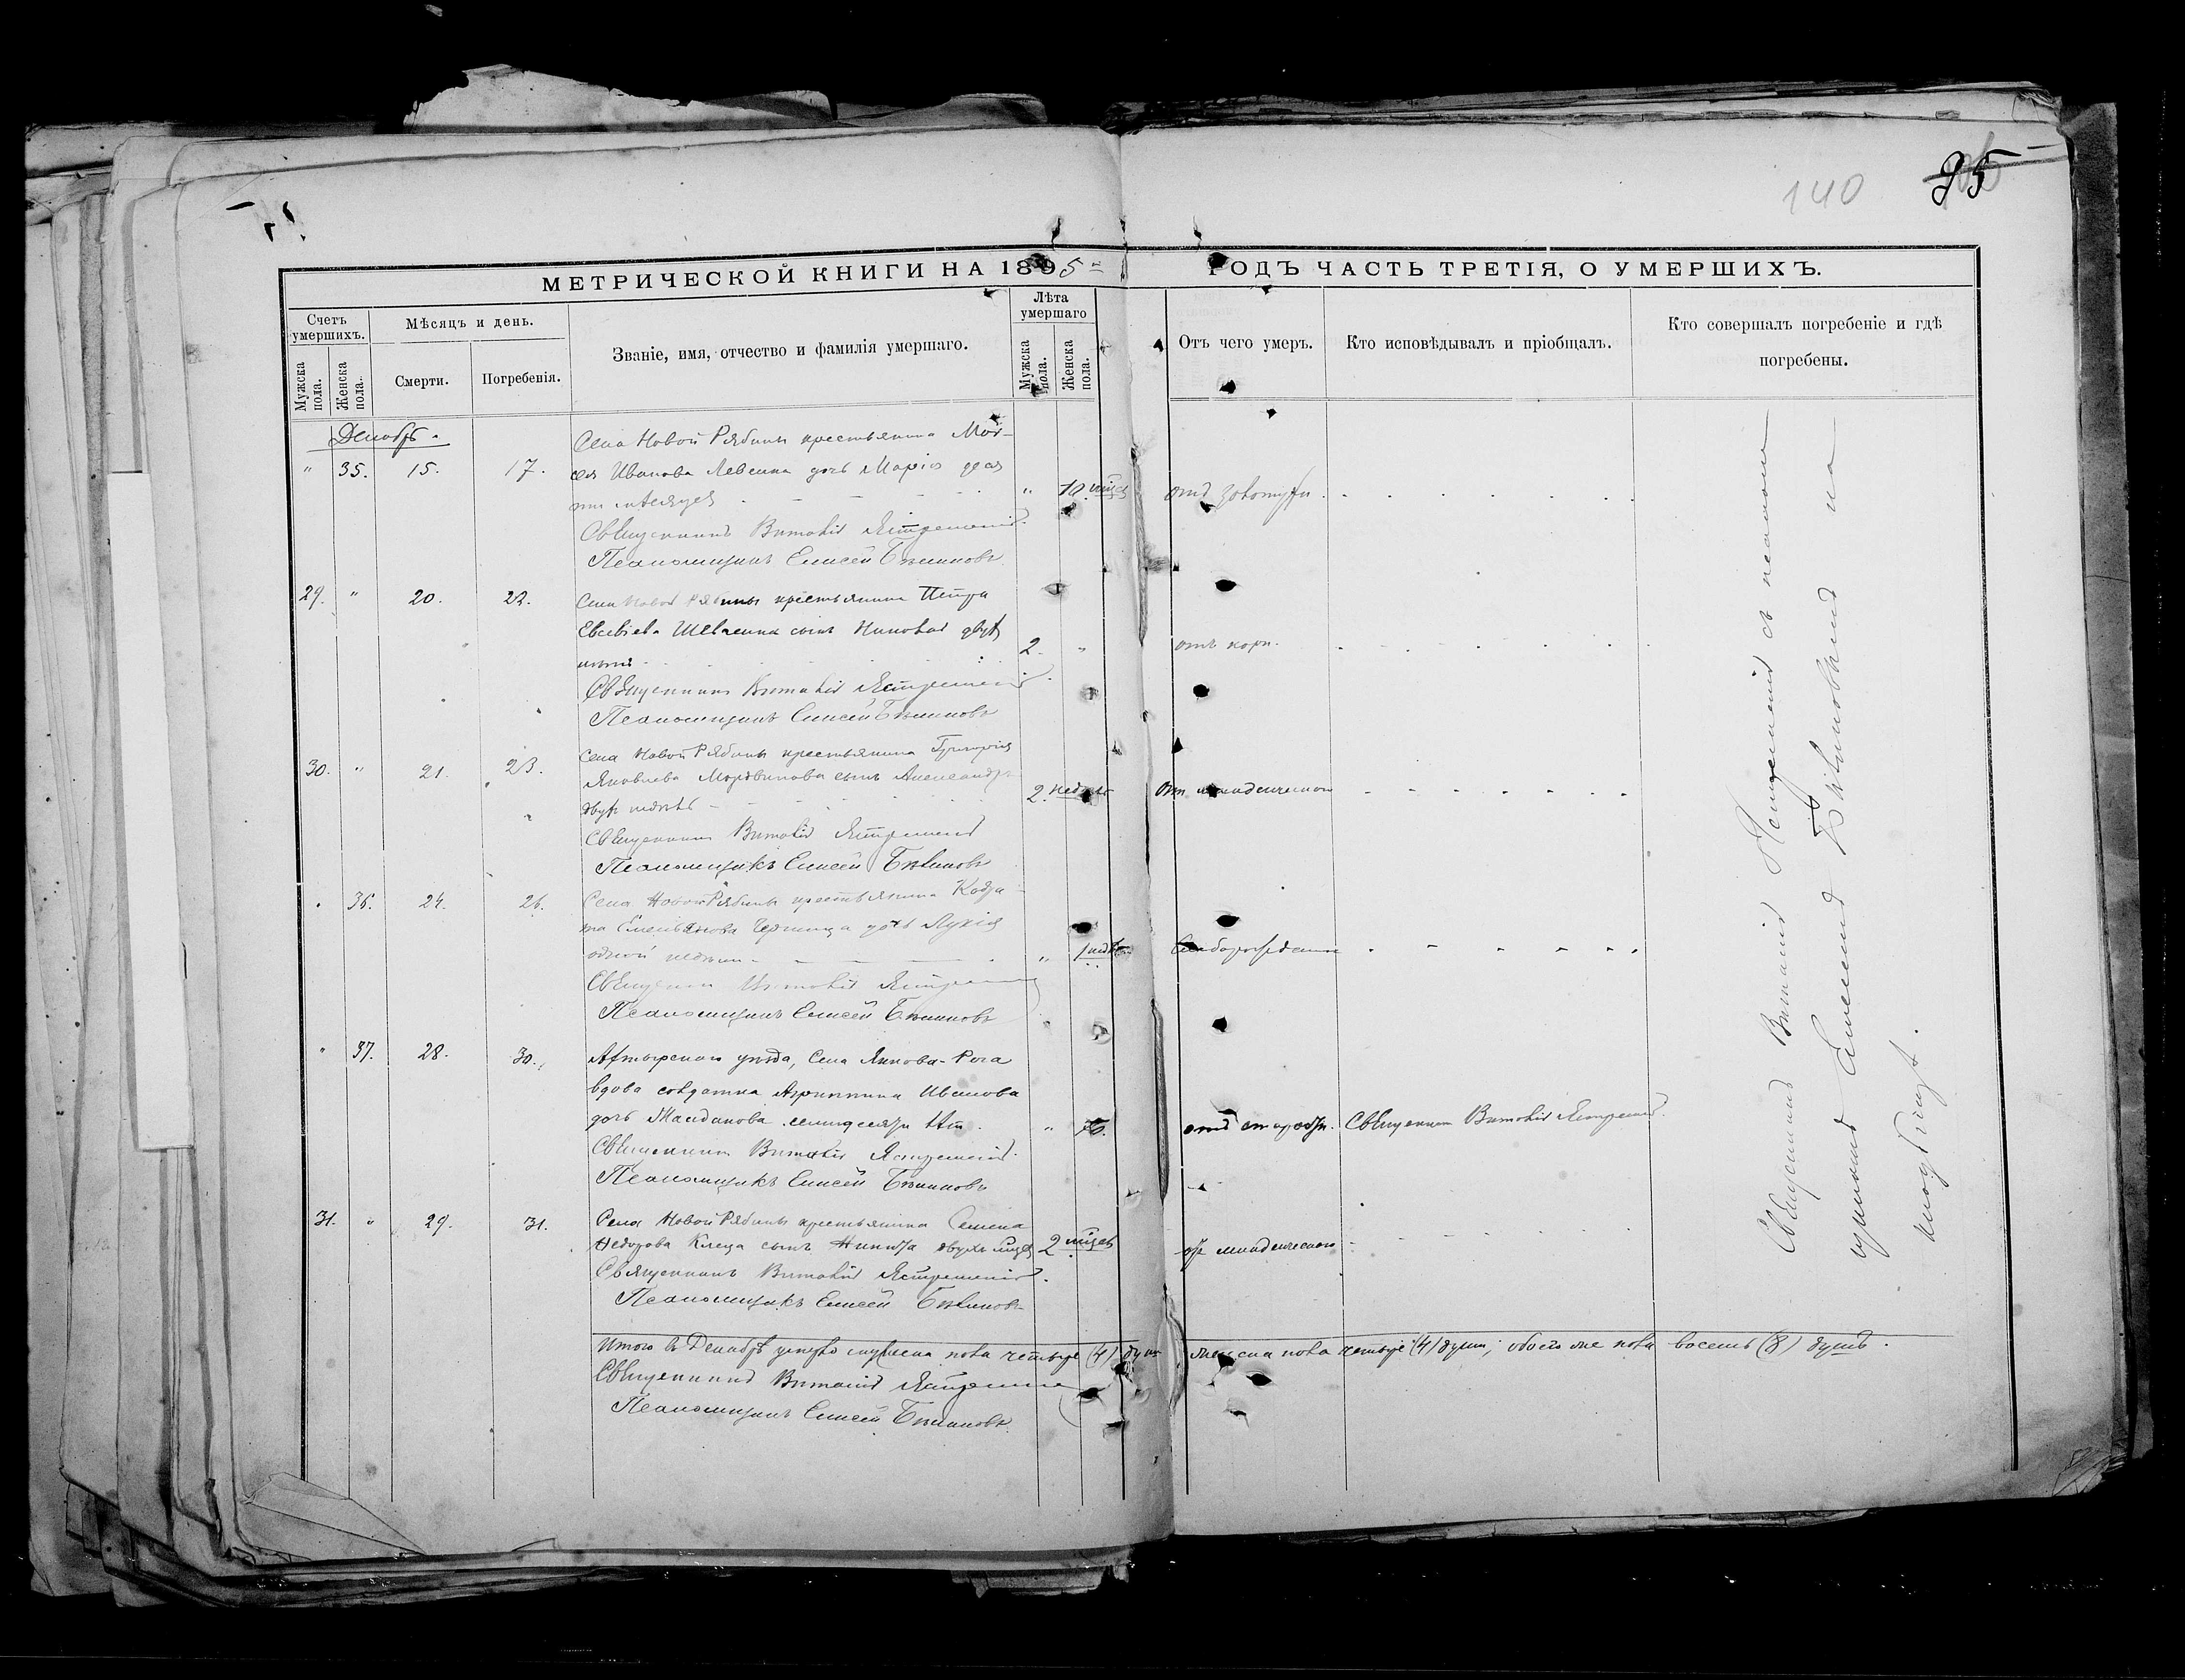 95
140
МЕТРИЧЕСКОЙ КНИГИ НА 1895 ГОДЪ ЧАСТЬ ТРЕТІЯ, О УМЕРШИХЪ.
Счетъ умершихъ.
Мужска пола.
Женска пола.
Мѣсяцъ и день.
Смерти.
Погребенія.
Званіе, имя, отчество и фамилія умершаго.
Лѣта умершаго
Мужска пола.
Женска пола.
Отъ чего умеръ.
Кто исповѣдывалъ и пріобщалъ.
Кто совершалъ погребеніе и гдѣ погребены.
Декабрь.
Села Новой Рябины крестьянина Мои-
" 35. 15. 17. сея Иванова дочь Марія деся
ти мѣсяцев " 10 мѣсец отъ золотухи
Священникъ Виталій
Псаломщикъ Елисей
29. " 20. 22. Села Новой Рябины крестьянина Петра
Евсевіева Шевченка сынъ двухъ
лѣтъ 2. " отъ кори.
Священникъ Виталій
Псаломщикъ Елисей
Села Новой Рябины крестьянина Григорія
30. " 21. 23. Яковлева Мордвинова сынъ Александръ
двухъ недѣль 2. недѣль отъ младенческой
Священникъ Виталій
Псаломщикъ Елисей
" 36. 24. 26. Села Новой Рябины крестьянина Кодра-
та Емельянова дочь Лукія
одной недѣли " 1 недѣл
Священникъ Виталій
Псаломщикъ Елисей
" 37. 28. 30. Ахтырскаго уѣзда, Села Янкова-Рога
вдова солдатка Агрипина Иванова
дочь Майданова семидесяти лѣт. " 70. отъ старости. Священникъ Виталій
Священникъ Виталій
Псаломщикъ Елисей
31. " 29. 31. Села Новой Рябины крестьянина Семена
Федорова сынъ Никита двухъ мѣсец 2 мѣсец от младенческой
Священникъ Виталій
Псаломщикъ Елисей
Итого въ Декабрѣ умерло мужеска пола четыре (4) душ женска пола четыре (4) души; обоего же пола восемь (8) душъ.
Священникъ Виталій
Псаломщикъ Елисей
Священникъ Виталій съ псалом-
щикомъ Елисеемъ на
кладбищѣ.